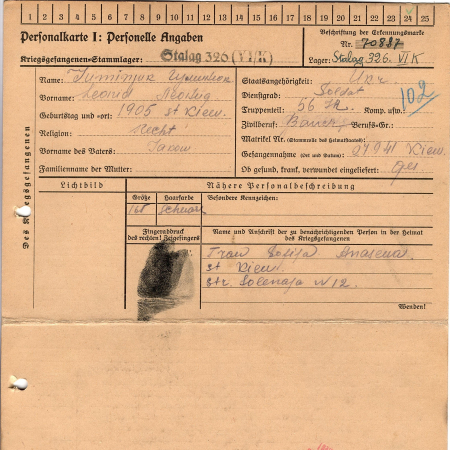 1 2 3 4 5 6 7 8 9 10 11 12 13 14 15 16 17 18 19 20 21 22 23 24 25
Personalkarte I: Personelle Angaben
Kriegsgefangenen-Stammlager: Stalag 326 (VI K)
Beschriftung der Erkennungsmarke
Nr. 70887
Lager: Stalag 326 VI K
Des Kriegsgefangenen
Name:
Vorname: Leonid
Geburtstag und -ort: 1905 st Kiew
Religion:
Vorname des Vaters: Jakow
Familienname der Mutter:
Staatsangehörigkeit: Ukr.
Dienstgrad: Soldat
Truppenteil: 56 Komp. usw.:
102
Zivilberuf: Berufs-Gr.:
Matrikel Nr. (Stammrolle des Heimatstaates):
Gefangennahme (Ort und Datum): Kiew
Ob gesund, krank, verwundet eingeliefert: ges.
Lichtbild
Nähere Personalbeschreibung
Größe
Haarfarbe
Besondere Kennzeichen:
168
schwarz
Fingerabdruck
des rechten! Zeigefingers
Name und Anschrift der zu benachrichtigenden Person in der Heimat
des Kriegsgefangenen
Frau Sofija
st Kiew
Str. N 12.
Wenden!